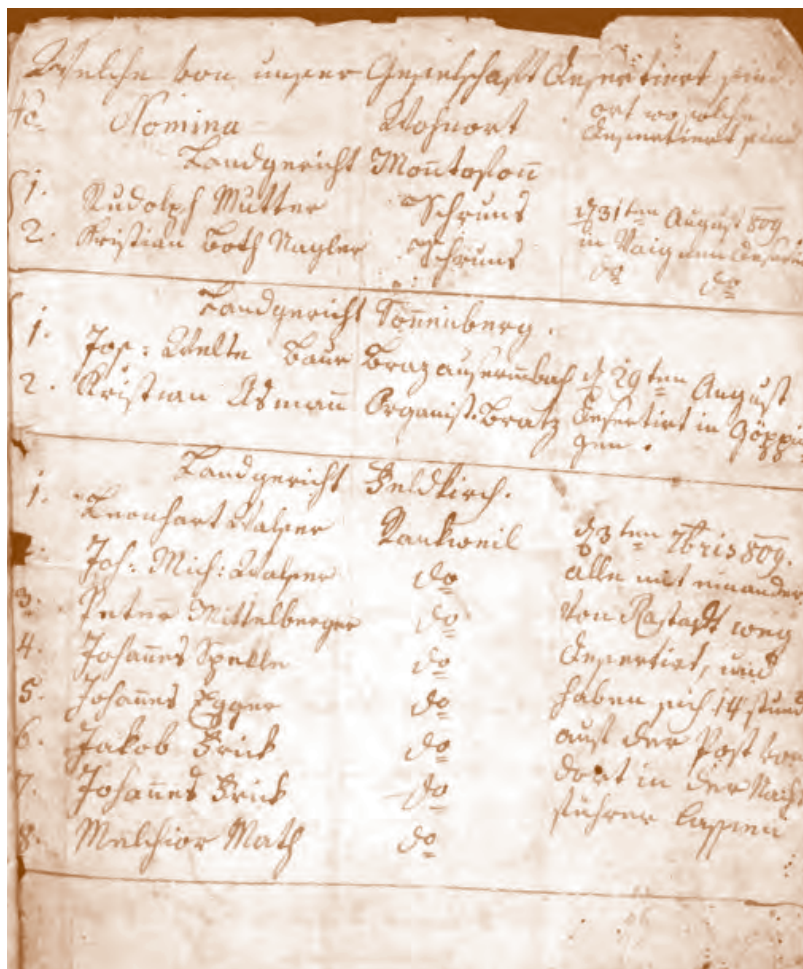 Welche von unser Geselschaft desertiert sind.
No. Nomina Wohnort ort wo solche
desertiert sind
Landgericht Montafon
1. Rudolph Mutter Schruns d 31ten August 809
2. Kristian Both Nagler Schruns in desertirt
do do
Landgericht Sonnenberg.
1. Jos: Welte Baur Braz auserm̄bach d 29ten August
2. Kristian Asmañ Organist Bratz desertirt in Göppin
gen.
Landgericht Feldkirch.
1. Leonhart Walser Rankweil d 3ten 7bris 809.
2. Joh: Mich: Walser do alle mit einander
3. Peter Mittelberger do von Rastadt weg
4. Johañes Spelle do desertirt, und
5. Johañes Egger do haben sich 14 stund
6. Jakob Frick do auf der Post von
7. Johañes Frick do dort in der Nacht
8. Melchior Math do führen lassen